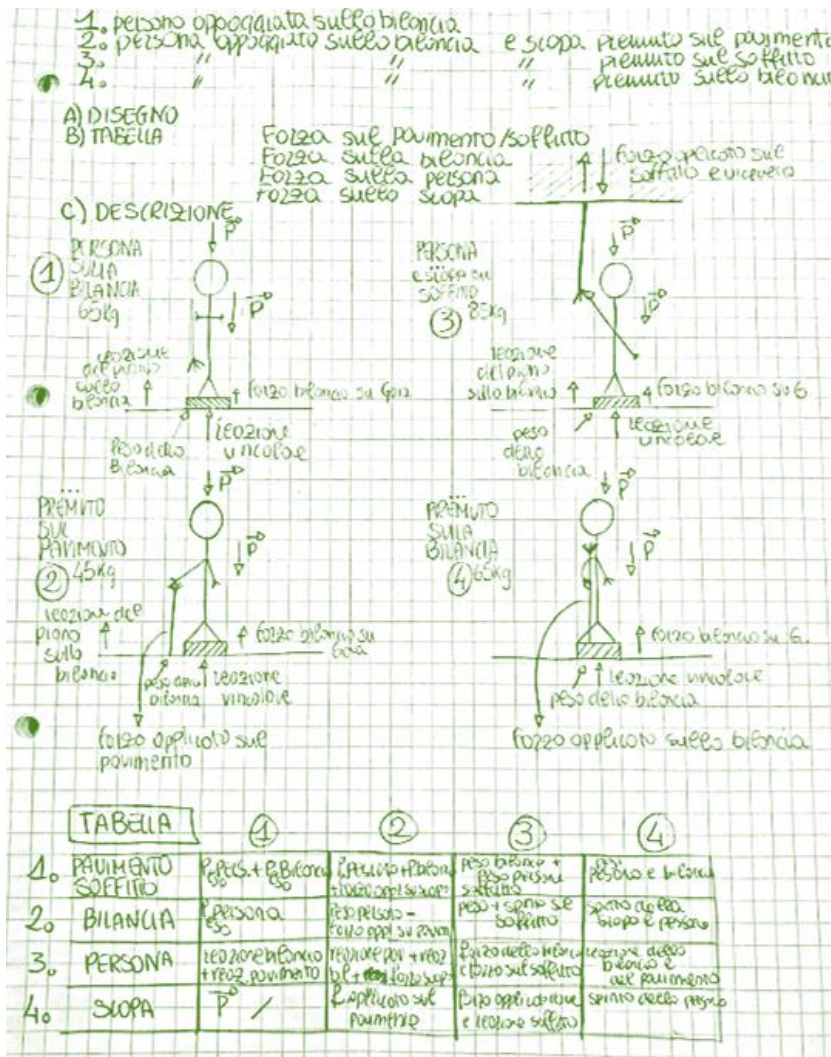 1. persona appoggiata sulla bilancia
2. persona appoggiata sulla bilancia e scopa premuto sul pavimento
3. " " " premuto sul soffitto
4. " " " premuto sulla
A) DISEGNO
B) TABELLA
Forza sul pavimento/soffitto
Forza sulla bilancia
Forza sulla persona
Forza sulla scopa
forza applicata sul
soffitto e viceversa
C) DESCRIZIONE
1 PERSONA
SULLA
BILANCIA
65kg
P
P
reazione
del piano
sulla
bilancia
forza bilancia su Gaia
peso della
bilancia
reazione
vincolare
PERSONA
e scopa su
SOFFITTO
3 85kg
P
P
reazione
del piano
sulla bilancia
forza bilancia su G.
peso
della
bilancia
reazione
vincolare
...
PREMUTO
SUL
PAVIMENTO
2 45kg
P
P
reazione del
piano
sulla
bilancia
forza bilancia su
Gaia
peso della
bilancia
reazione
vincolare
forza applicata sul
pavimento
...
PREMUTO
SULLA
BILANCIA
4 65kg
P
P
forza bilancia su G.
reazione vincolare
peso della bilancia
forza applicata sulla bilancia
TABELLA 1 2 3 4
1. PAVIMENTO
SOFFITTO
peso bilancia +
peso persona
soffitto
2. BILANCIA
persona
peso
peso persona -
peso + spinta sul
soffitto
spinta della
scopa e persona
3. PERSONA
reazione bilancia
+ reaz. pavimento
forza della bilancia
e forza sul soffitto
reazione della
bilancia e
del pavimento
4. SCOPA
P /
F. applicata sul
pavimento
forza applicazione
e reazione soffitto
spinta della